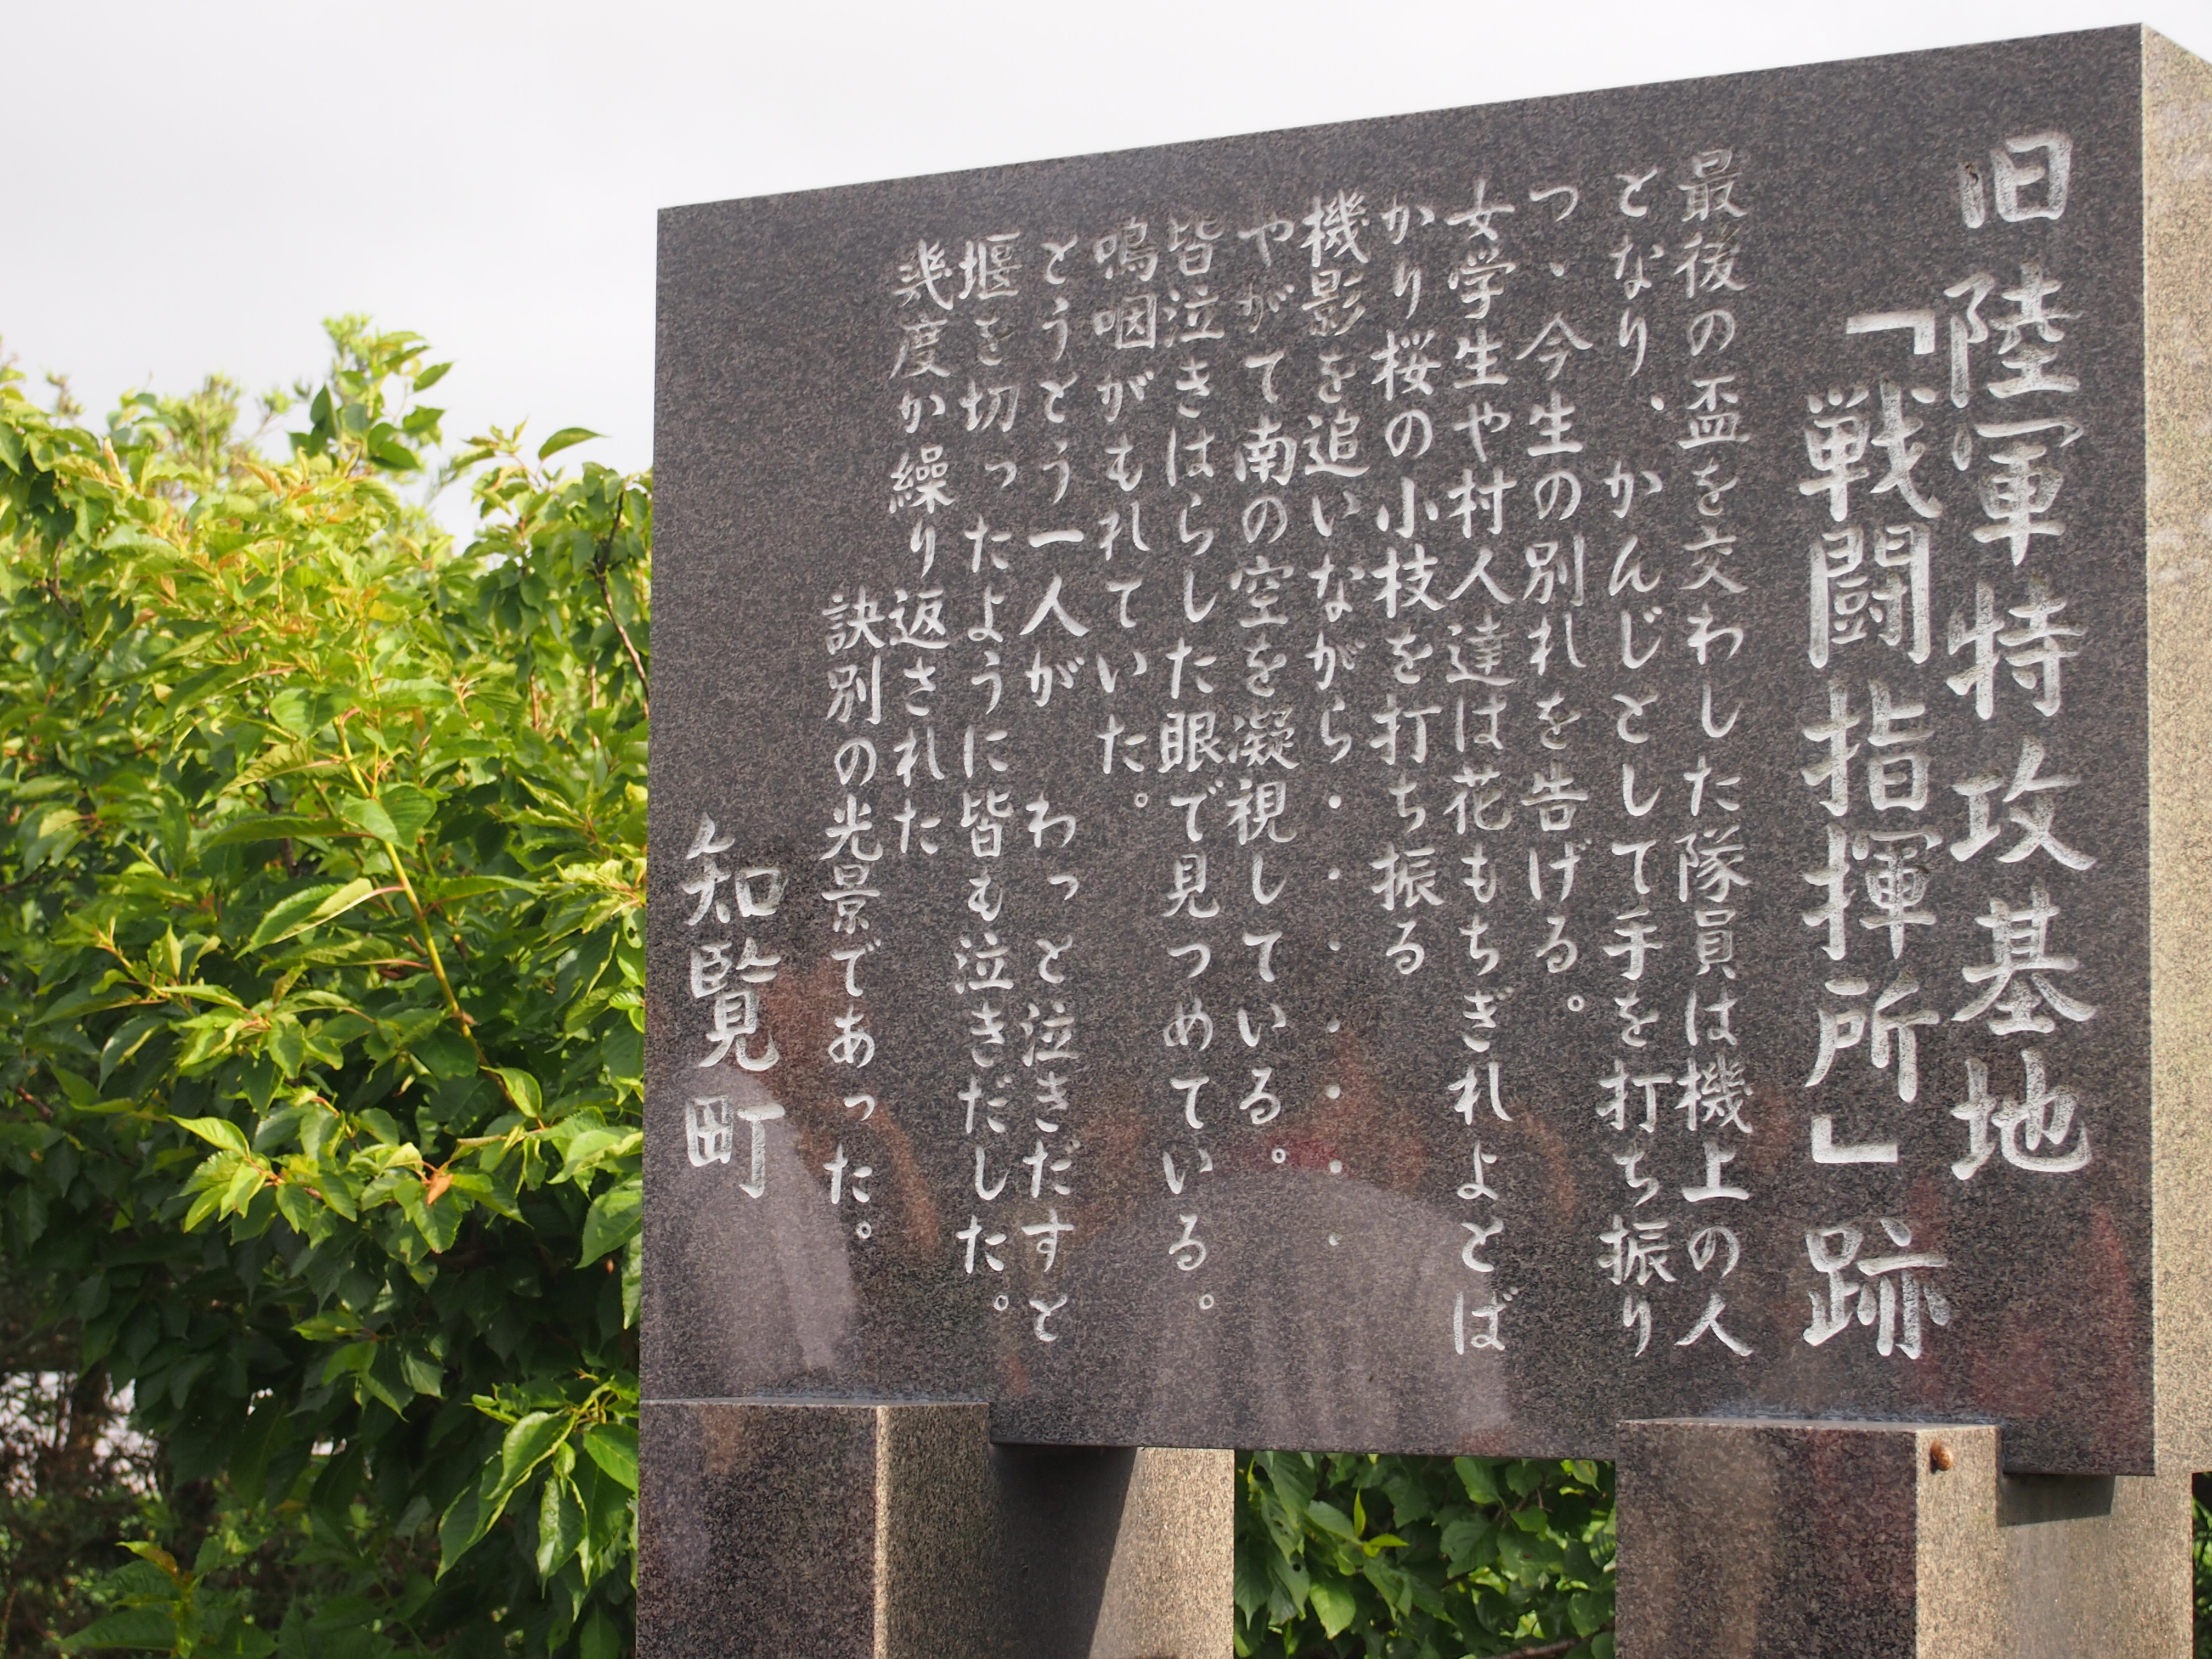 旧陸軍特攻基地
「戦闘指揮所」跡
最後の盃を交わした隊員は機上の人
となり、かんじとして手を打ち振り
つ、今生の別れを告げる。
女学生や村人達は花もちぎれよとば
かり桜の小枝を打ち振る
機影を追いながら・・・・・・・
やがて南の空を凝視している。
皆泣きはらした眼で見つめている。
嗚咽がもれていた。
とうとう一人が わっと泣きだすと
堰を切ったように皆も泣きだした。
幾度か繰り返された
訣別の光景であった。
知覧町